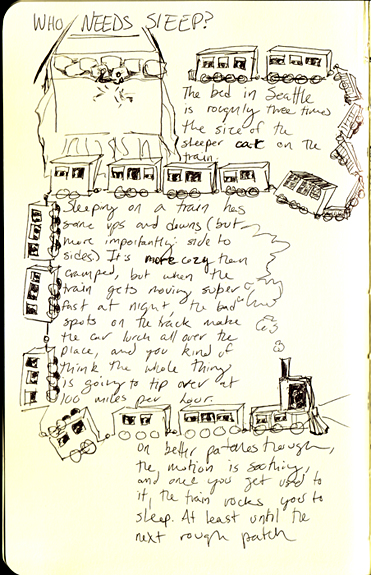 WHO NEEDS SLEEP?
The bed in Seattle
is roughly three times
the size of the
sleeper car on the
train.
Sleeping on a train has
some ups and downs (but
more importantly: side to
sides) It's more cozy than
cramped, but when the
train gets moving super
fast at night, the bad
spots on the track make
the car lurch all over the
place, and you kind of
think the whole thing
is going to tip over at
100 miles per hour.
on better patches though,
the motion is soothing,
and once you get used to
it, the train rocks you to
sleep. At least until the
next rough patch